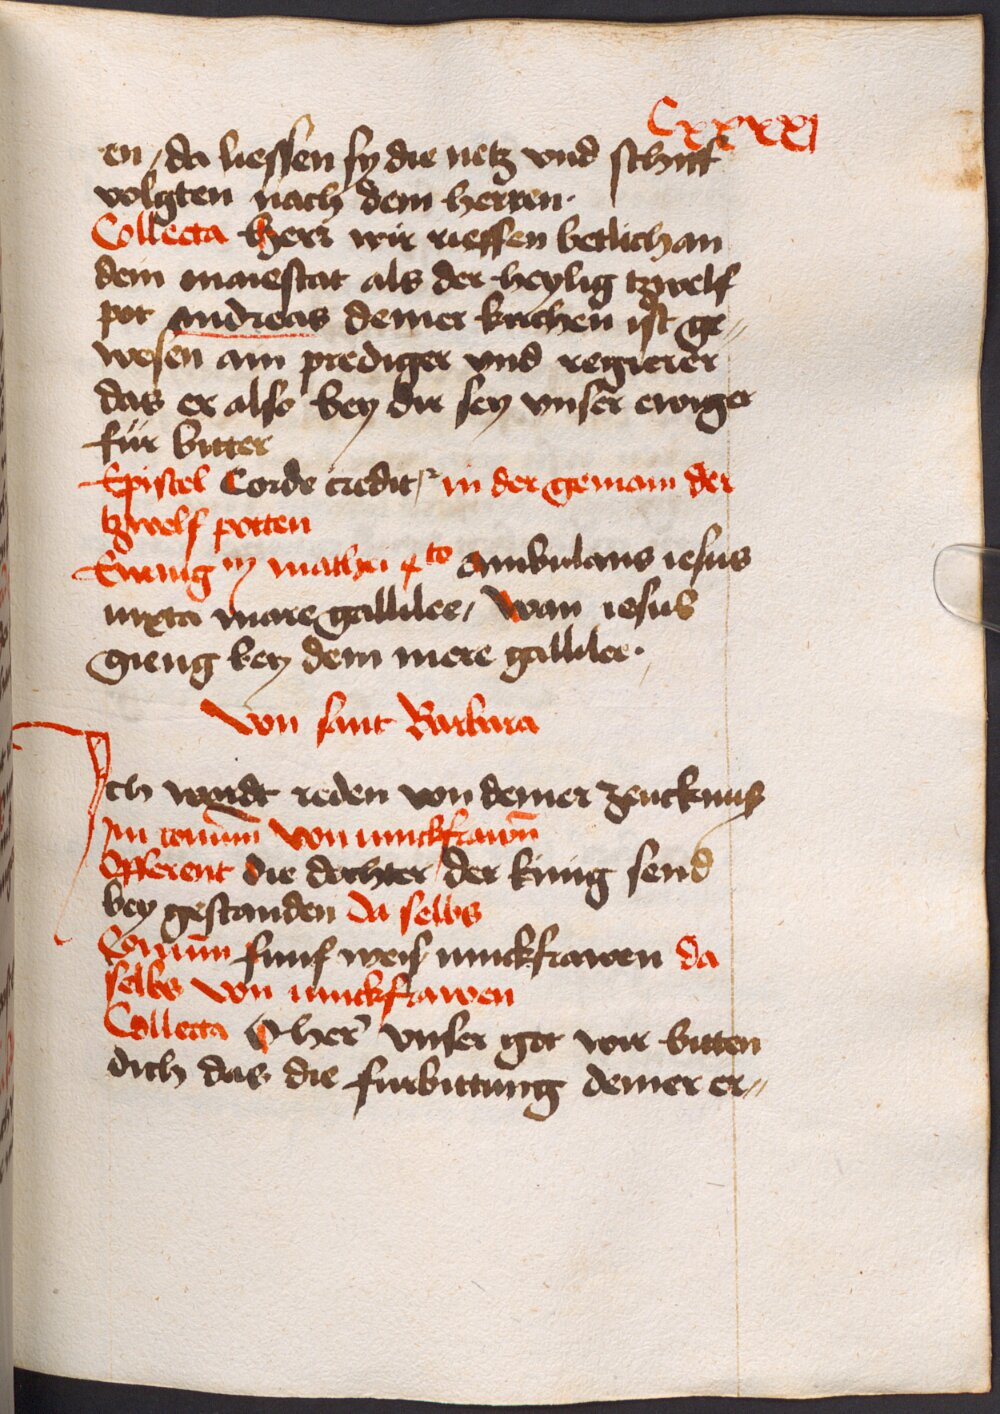 Cxxxxj
en / da liessen sy die netz vnd schiff
volgten nach dem herren ·
Collecta Herr wir rieffen betlich an
dein maiestat als der heylig tzwelf
pot andreas deiner kirchen ist ge〃
wesen ain prediger vnd regierer
das er also bey dir sey vnser ewiger
für bitter
Epistel Corde creditr in der gemain der
tzwelf potten
Ewang mathei 4to ambulans iesus
iuxta mare gallilee / Wan iesus
gieng bey dem mere gallilee ·
Von sant Barbara
Ich wardt reden von deiner zeucknus
Im comun von iunckfrawen
Offerent die dochter der kinig send
bey gestanden da selbs
Comun funf weis iunckfrawen da
selbs von iunckfrawen
Collecta O her vnser got wir bitten
dich das die furbittung deiner er〃